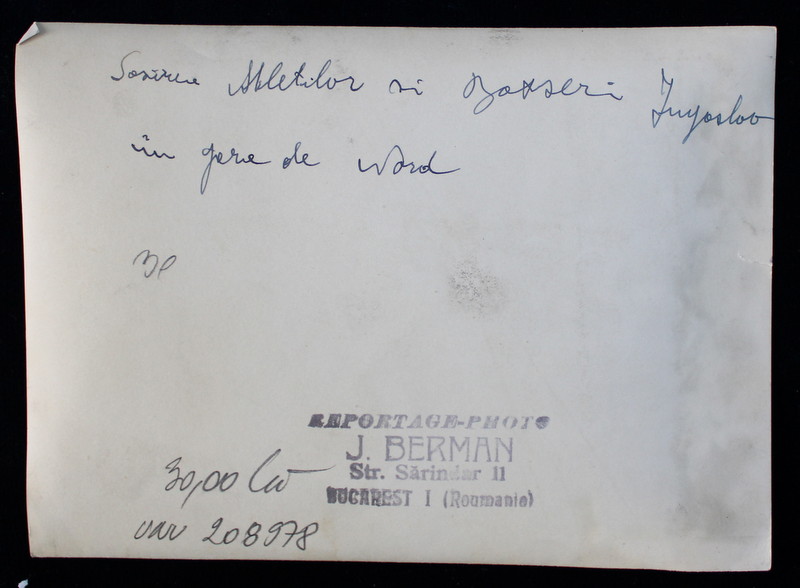 Sosirea Atletilor si Boxseri Jugoslov
in gara de Nord
30
REPORTAGE-PHOTO
J. BERMAN
Str. Sărindar 11
BUCAREST I (Roumanie)
30,00 lei
208978